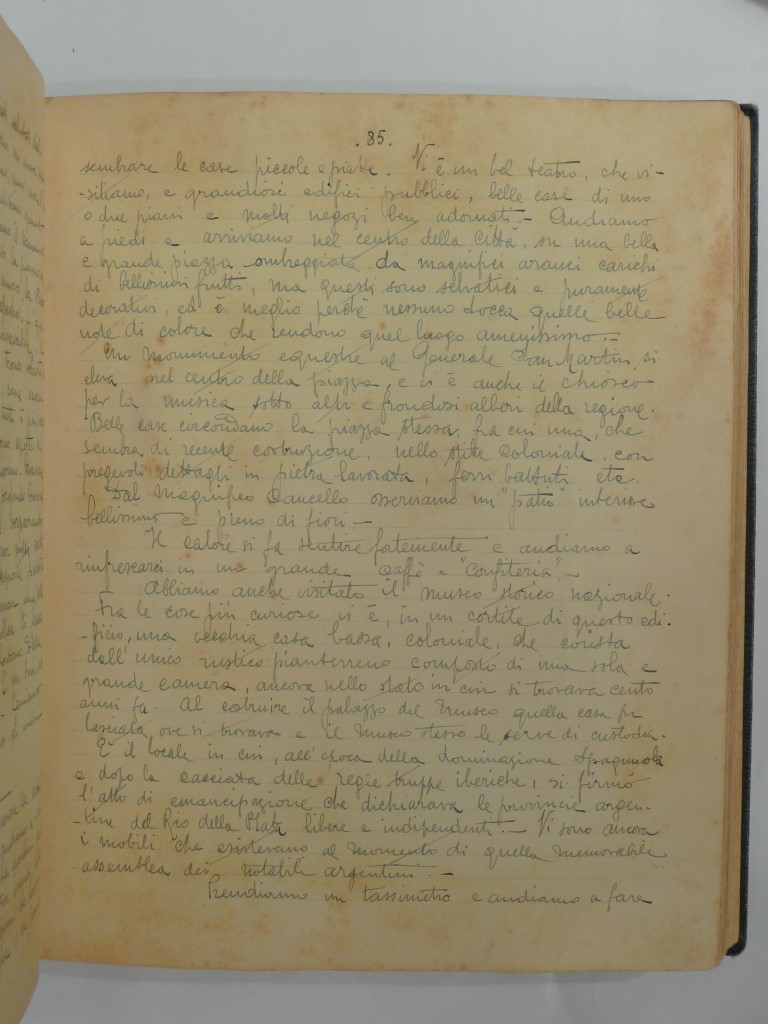 .85.
sembrare le case piccole e piatte. Vi è un bel teatro, che vi-
-sitiamo, e grandiosi edifici pubblici, belle case di uno
o due piani e molti negozi ben adornati.- Andiamo
a piedi e arriviamo nel centro della città, su una bella
e grande piazza ombreggiata da magnifici aranci carichi
di bellissimi frutti, ma questi sono selvatici e puramente
decorativi, ed è meglio perchè nessuno tocca quelle belle
note di colore che rendono quel luogo amenissimo.-
Un monumento equestre al Generale San Martin si
eleva nel centro della piazza, e vi è anche il chiosco
per la musica sotto alti e frondosi alberi della regione.
Belle case circondano la piazza stessa, fra cui una, che
sembra di recente costruzione, nello stile coloniale, con
pregevoli dettagli in pietra lavorata, ferri battuti etc.
Dal magnifico cancello osserviamo un "patio" interiore
bellissimo e pieno di fiori-
Il calore si fa sentire fortemente e andiamo a
rinfrescarci in un grande caffè e "confiteria".-
Abbiamo anche visitato il museo storico nazionale.
Fra le cose più curiose vi è, in un cortile di questo edi-
-ficio, una vecchia casa bassa, coloniale, che consta
dall'unico rustico pianterreno composto di una sola e
grande camera, ancora nello stato in cui si trovava cento
anni fa. Al costruire il palazzo del museo quella casa fu
lasciata, ove si trovava e il museo stesso le serve di custodia.
È il locale in cui, all'epoca della dominazione spagnuola
e dopo la cacciata delle regie truppe iberiche, si firmò
l'atto di emancipazione che dichiarava le provincie argen-
-tine del Rio della Plata libere e indipendenti.- Vi sono ancora
i mobili che esistevano al momento di quella memorabile
assemblea dei notabili argentini.-
Prendiamo un tassimetro e andiamo a fare